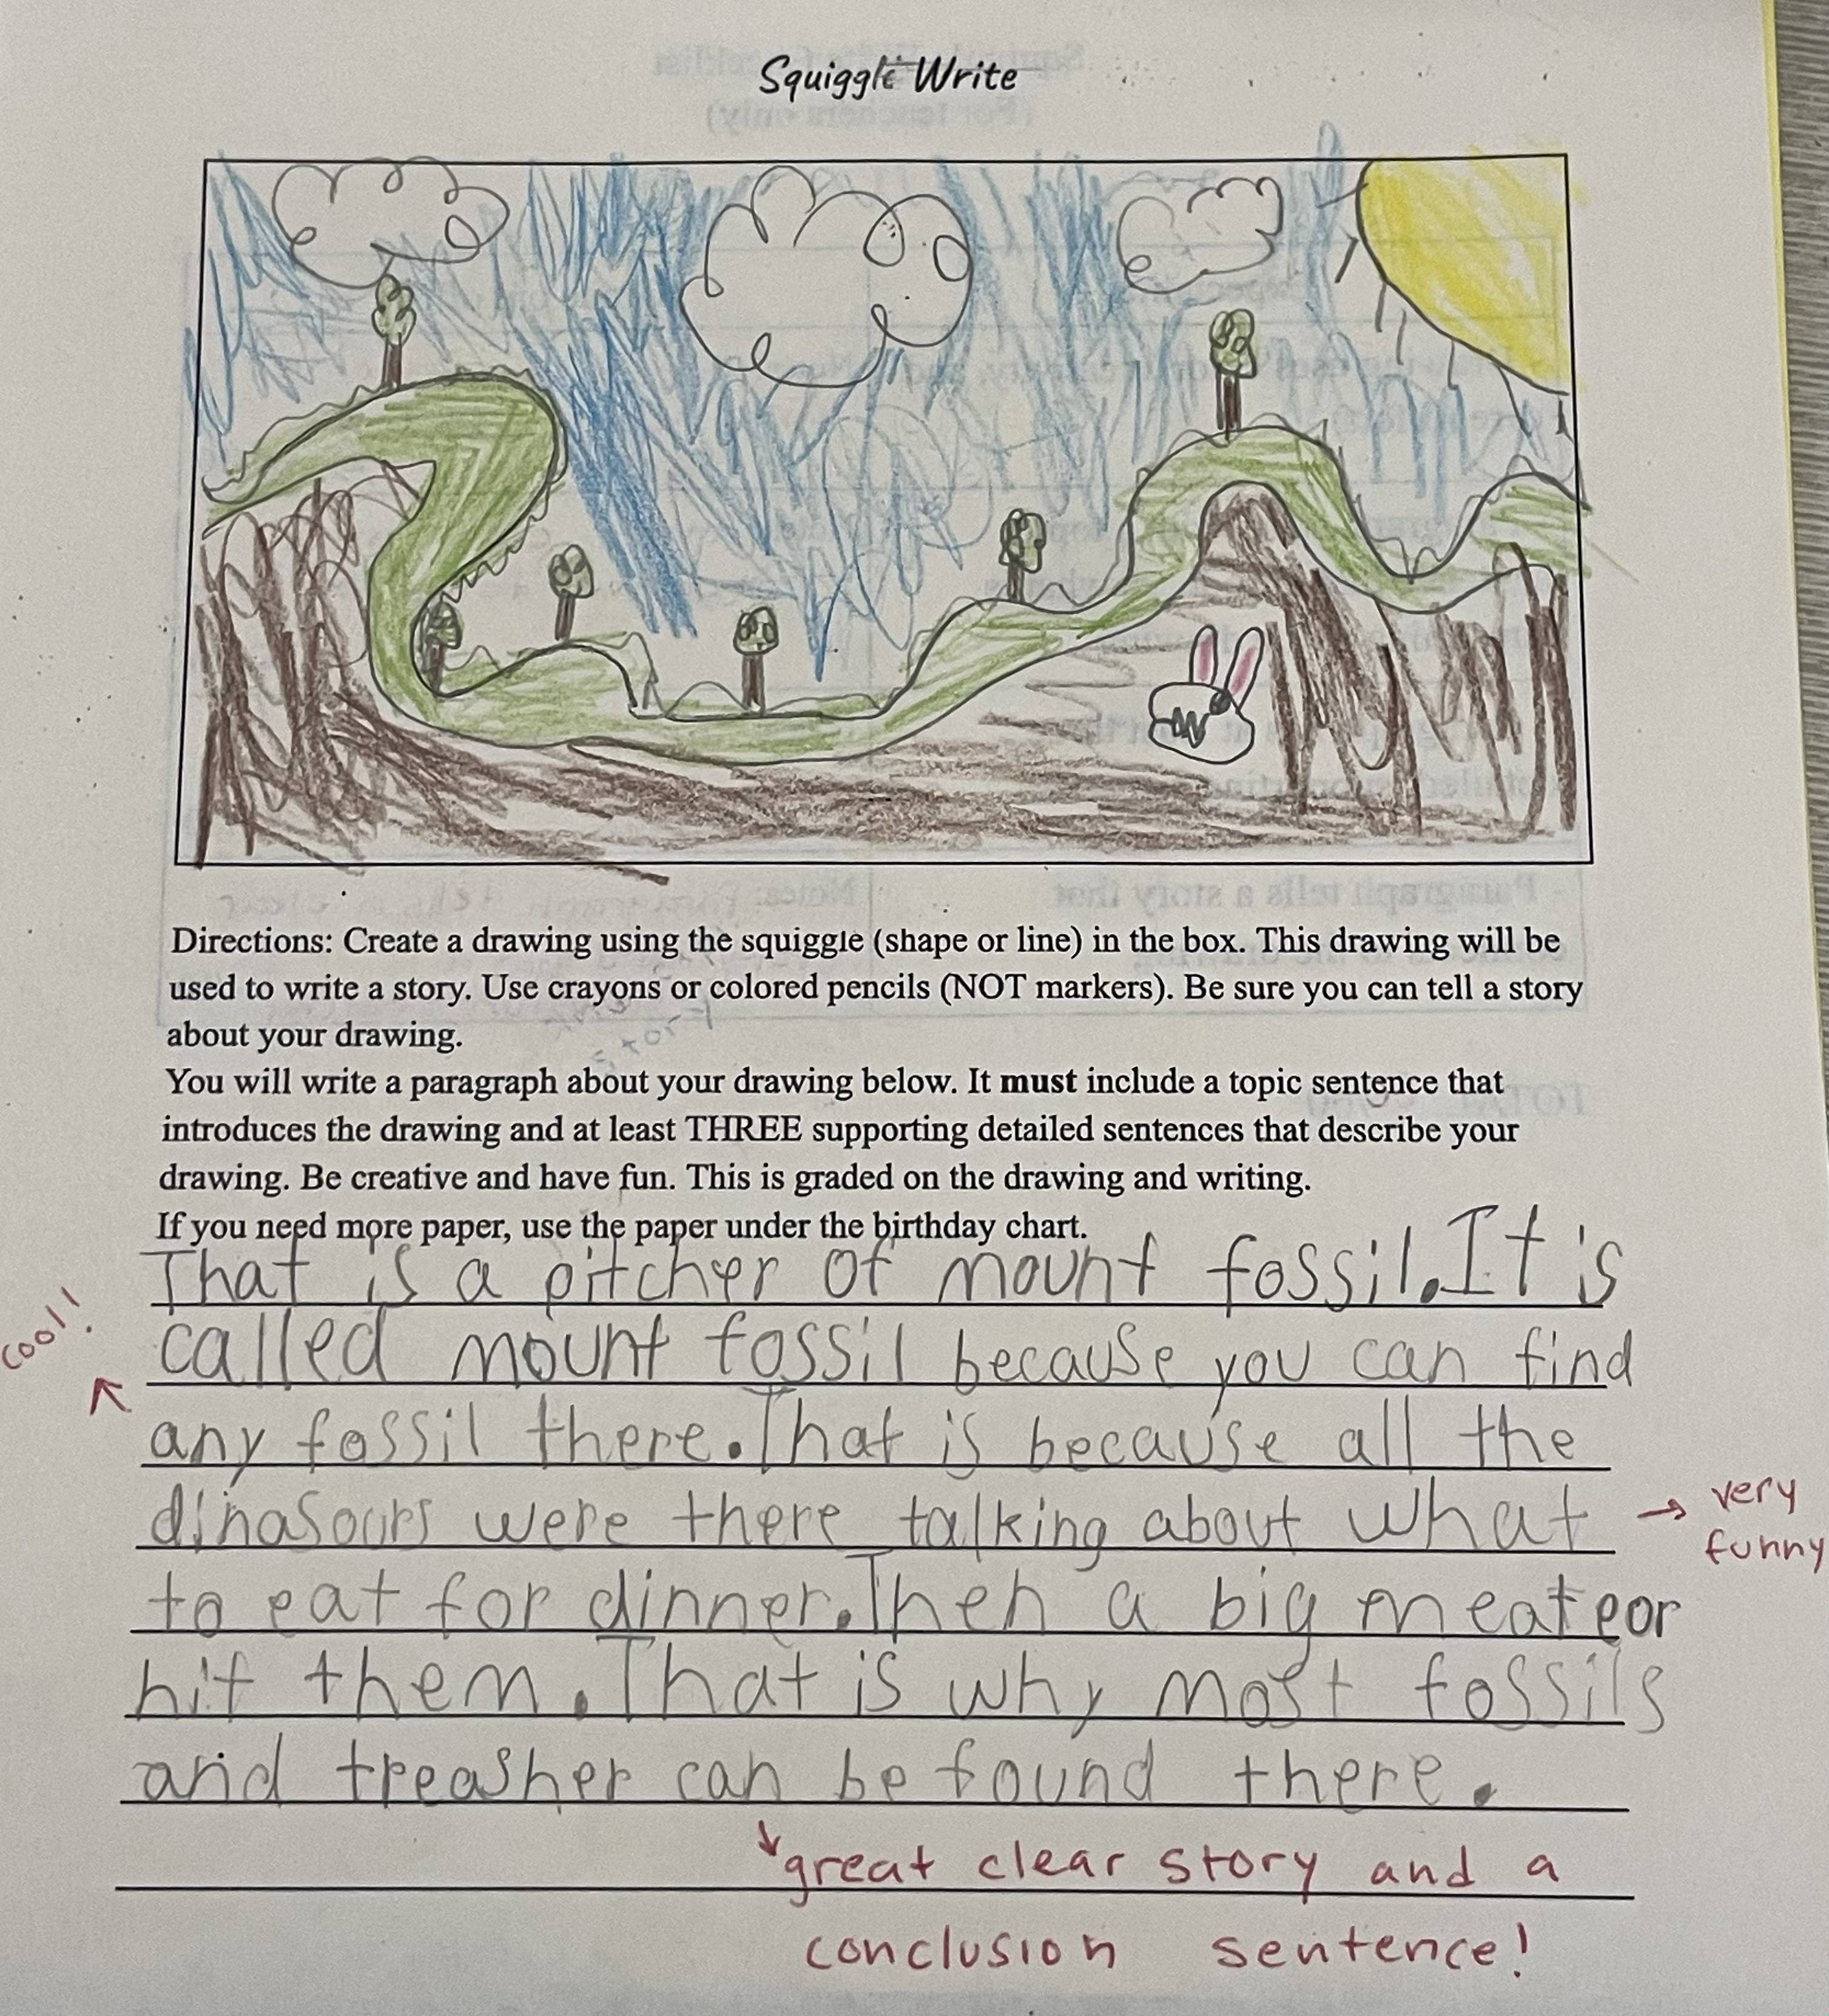 Squiggle Write
Directions: Create a drawing using the squiggle (shape or line) in the box. This drawing will be
used to write a story. Use crayons or colored pencils (NOT markers). Be sure you can tell a story
about your drawing.
You will write a paragraph about your drawing below. It must include a topic sentence that
introduces the drawing and at least THREE supporting detailed sentences that describe your
drawing. Be creative and have fun. This is graded on the drawing and writing.
If you need more paper, use the paper under the birthday chart.
That is a pitcher of mount fossil. It is
cool!
called mount fossil because you can find
any fossil there. That is because all the
dinasours were there talking about what
→ very
funny
to eat for dinner. Then a big meateor
hit them. That is why most fossils
and treasher can be found there.
great clear story and a
conclusion sentence!